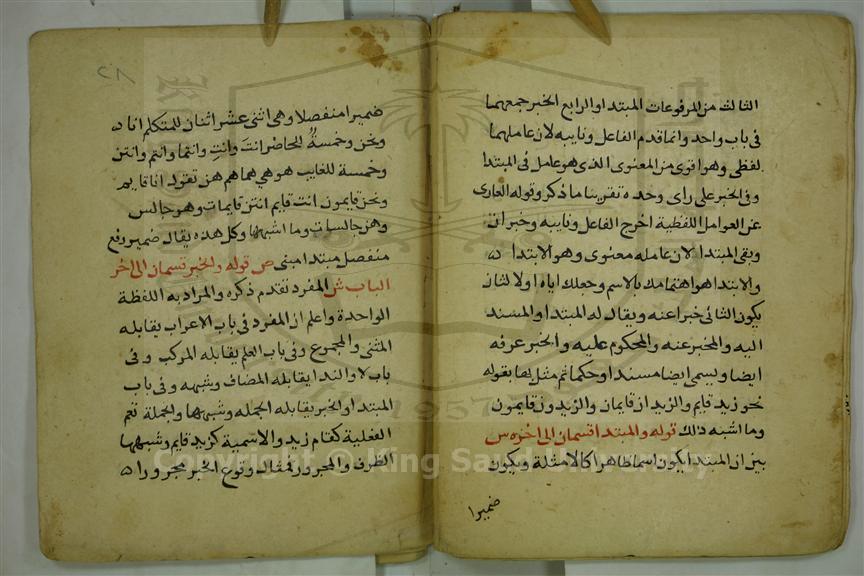 الثالث من المرفوعات المبتدا والرابع الخبر جمعهما
فى باب واحد وانما قدم الفاعل ونايبه لان عاملهما
لفظى وهو اقوى من المعنوى الذى هو عامل فى المبتدا
وفى الخبر على راى وحده تفريقا ما ذكر وقوله العارى
عن العوامل اللفظية اخرج الفاعل ونايبه وخبر ان
وبقى المبتدا لان عامله معنوى وهو الابتدا ه
والابتدا هو اهتمامك بالاسم وجعلك اياه اولا لثان
يكون الثانى خبرا عنه ويقال له المبتدا والمسند
اليه والمخبر عنه والمحكوم عليه والخبر عرفه
ايضا ويسمى ايضا مسندا وحكما ثم مثل لهما بقوله
نحو زيد قايم والزيدان قايمان والزيدون قايمون
وما اشبه ذلك قوله والمبتدا قسمان الى اخره س
بين ان المبتدا يكون اسما ظاهرا كالامثلة ويكون
ضميرا
٢٨
ضميرا منفصلا وهى اثنى عشر اثنان للمتكلم انا ه
ونحن وخمسة للحاضر انتَ وانتِ وانتما وانتم وانتن
وخمسة للغايب هو هى هما هم هن تقول انا قايم
ونحن قايمون انت قايم انتن قايمات وهو جالس
وهن جالسات وما اشبهها وكل هذه يقال ضمير رفع
منفصل مبتدا مبنى ص قوله والخبر قسمان الى اخر
الباب ش المفرد تقدم ذكره والمراد به اللفظة
الواحدة واعلم ان المفرد فى باب الاعراب يقابله
المثنى والمجموع وفى باب العلم يقابله المركب وفى
باب لا والندا يقابله المضاف وشبهه وفى باب
المبتدا والخبر يقابله الجملة وشبهها والجملة تعم
الفعلية كقام زيد والاسمية كزيد قايم وشبهها
الظرف والمجرور فمثال وقوع الخبر مجرورا ه
Copyright © King Saud University
1957